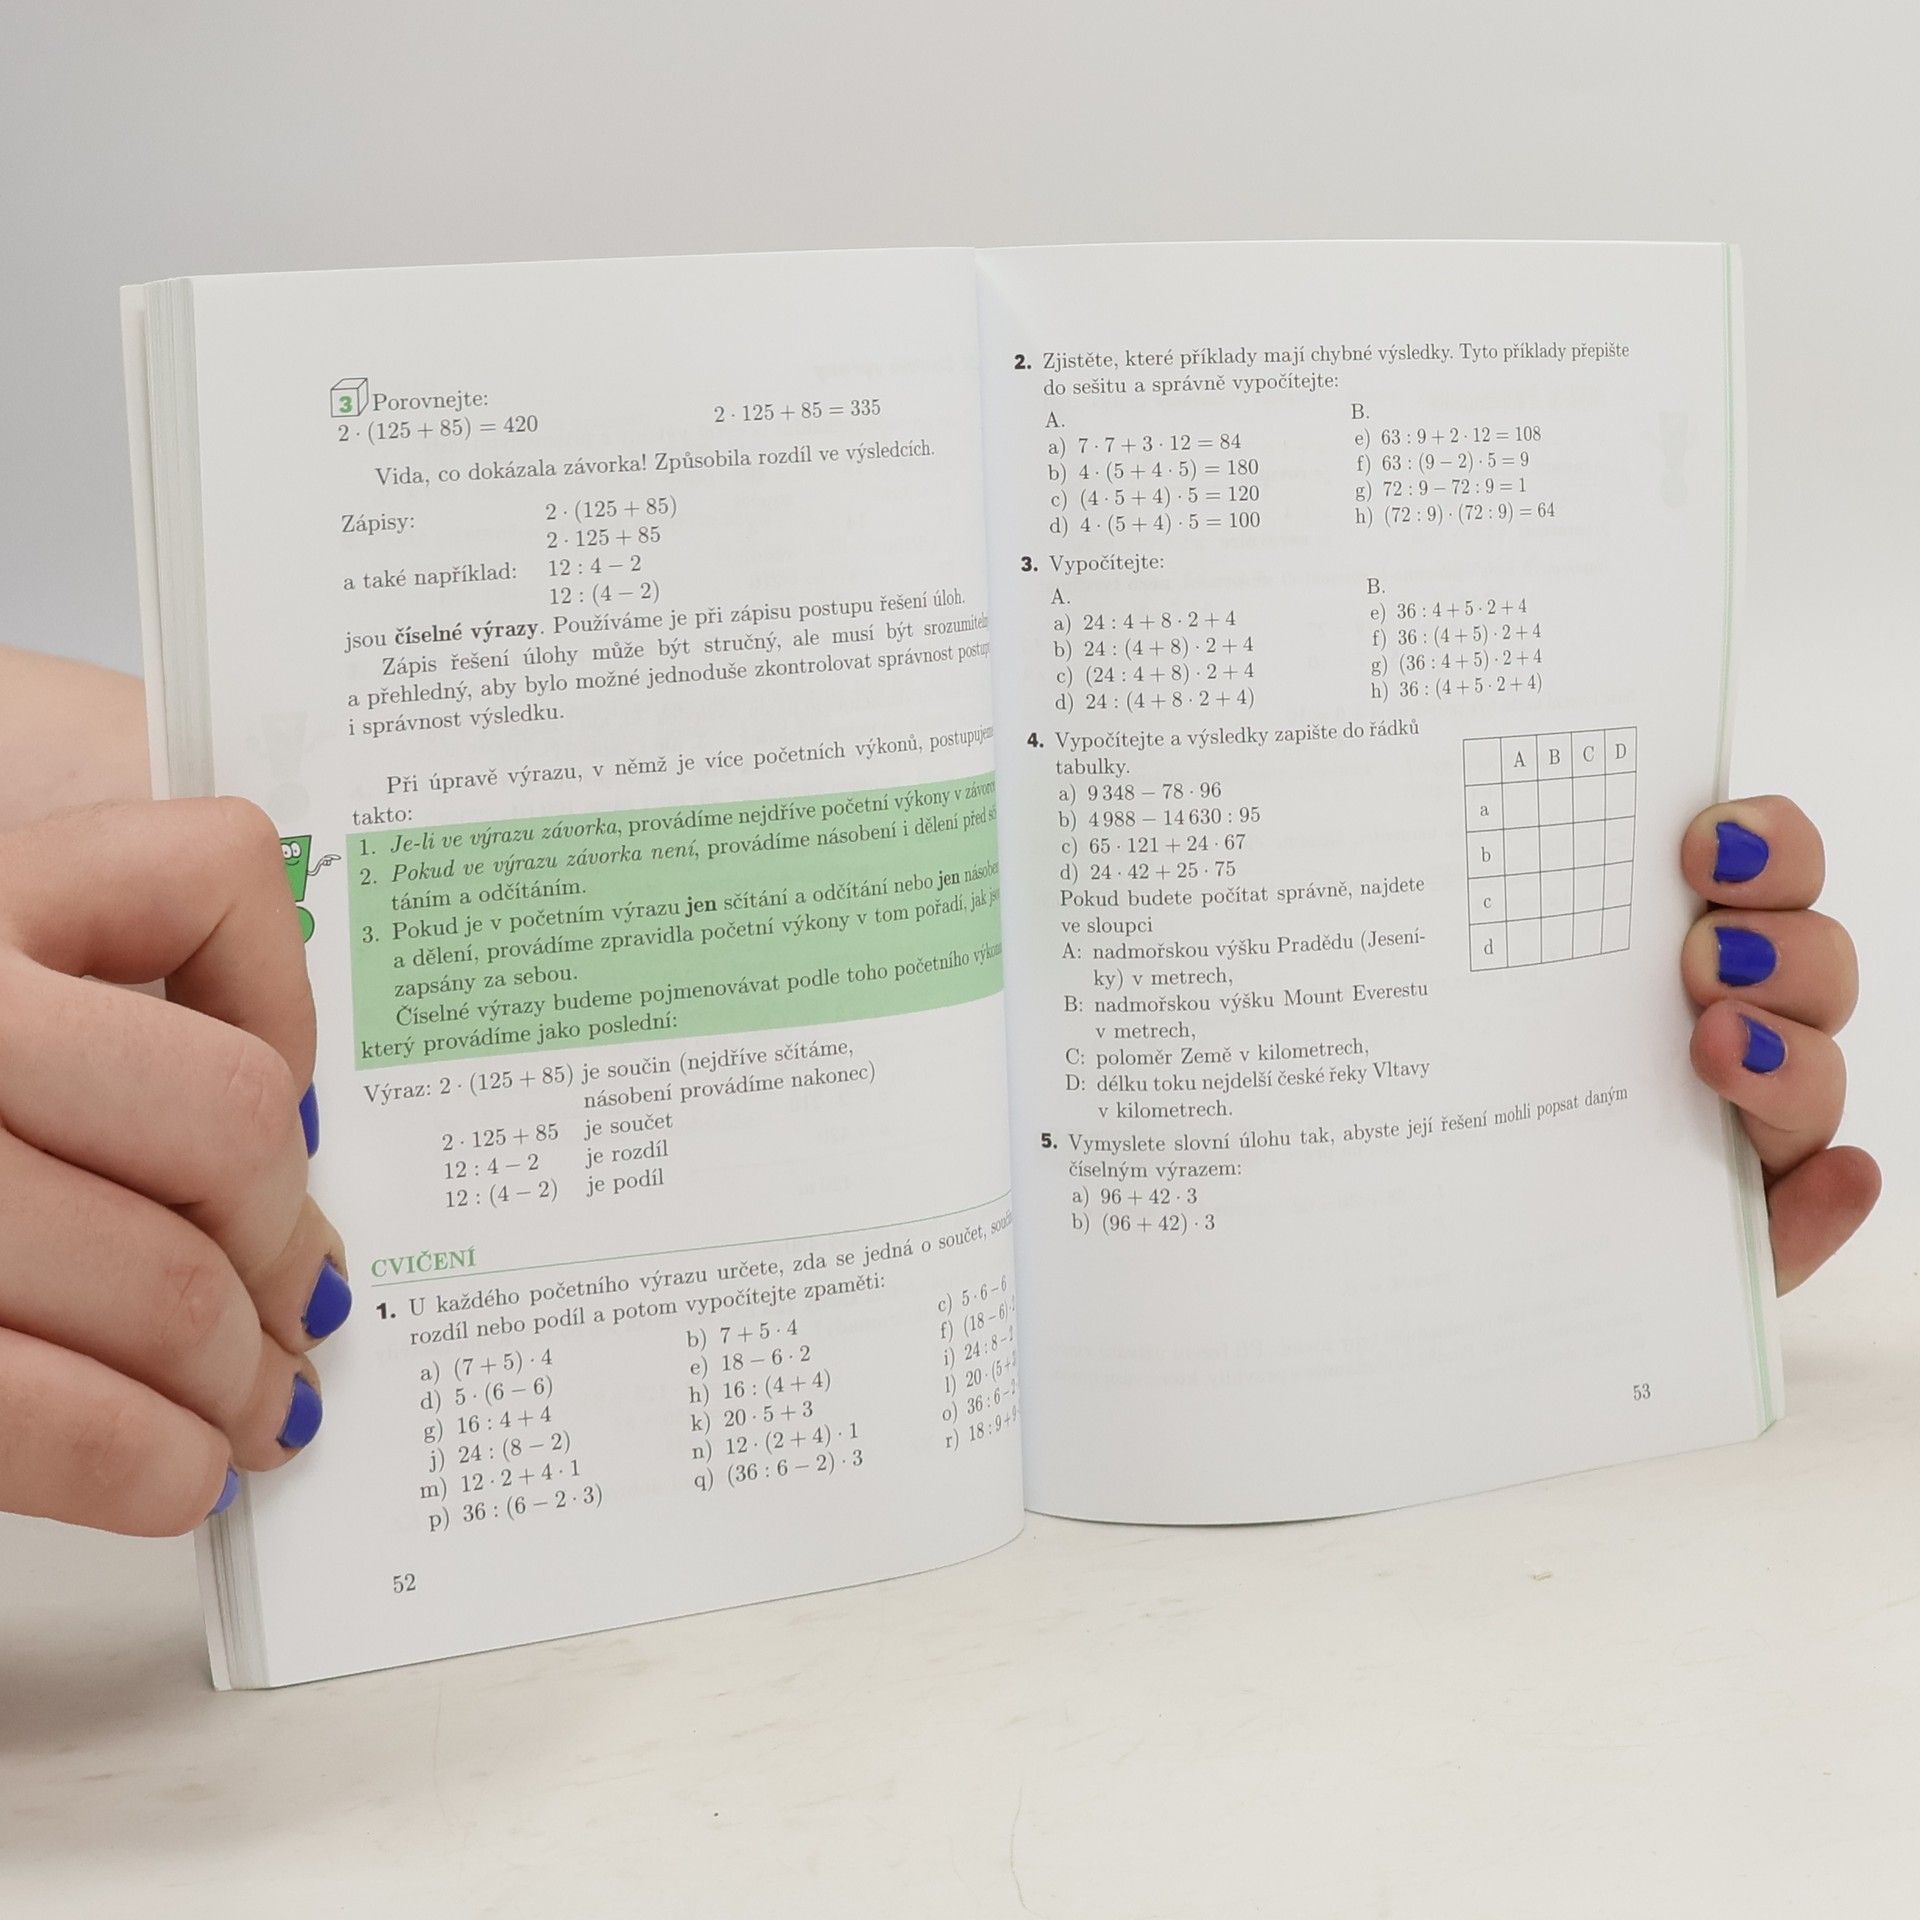 3 Porovnejte:
2 · (125 + 85) = 420 2 · 125 + 85 = 335
Vida, co dokázala závorka! Způsobila rozdíl ve výsledcích.
Zápisy: 2 · (125 + 85)
2 · 125 + 85
a také například: 12 : 4 − 2
12 : (4 − 2)
jsou číselné výrazy. Používáme je při zápisu postupu řešení úloh.
Zápis řešení úlohy může být stručný, ale musí být
a přehledný, aby bylo možné jednoduše zkontrolovat správnost
i správnost výsledku.
Při úpravě výrazu, v němž je více početních výkonů,
takto:
1. Je-li ve výrazu závorka, provádíme nejdříve početní výkony v
2. Pokud ve výrazu závorka není, provádíme násobení i dělení před
táním a odčítáním.
3. Pokud je v početním výrazu jen sčítání a odčítání nebo jen
a dělení, provádíme zpravidla početní výkony v tom pořadí, jak
zapsány za sebou.
Číselné výrazy budeme pojmenovávat podle toho početního
který provádíme jako poslední:
Výraz: 2 · (125 + 85) je součin (nejdříve sčítáme,
násobení provádíme nakonec)
2 · 125 + 85 je součet
12 : 4 − 2 je rozdíl
12 : (4 − 2) je podíl
CVIČENÍ
1. U každého početního výrazu určete, zda se jedná o součet,
rozdíl nebo podíl a potom vypočítejte zpaměti:
a) (7 + 5) · 4 b) 7 + 5 · 4 c) 5 · 6 − 6
d) 5 · (6 − 6) e) 18 − 6 · 2 f) (18 − 6) ·
g) 16 : 4 + 4 h) 16 : (4 + 4) i) 24 : 8 − 2
j) 24 : (8 − 2) k) 20 · 5 + 3 l) 20 · (5 +
m) 12 · 2 + 4 · 1 n) 12 · (2 + 4) · 1 o) 36 : 6 − 2
p) 36 : (6 − 2 · 3) q) (36 : 6 − 2) · 3 r) 18 : 9 + 9
52
2. Zjistěte, které příklady mají chybné výsledky. Tyto příklady přepište
do sešitu a správně vypočítejte:
A. B.
a) 7 · 7 + 3 · 12 = 84 e) 63 : 9 + 2 · 12 = 108
b) 4 · (5 + 4 · 5) = 180 f) 63 : (9 − 2) · 5 = 9
c) (4 · 5 + 4) · 5 = 120 g) 72 : 9 − 72 : 9 = 1
d) 4 · (5 + 4) · 5 = 100 h) (72 : 9) · (72 : 9) = 64
3. Vypočítejte:
A. B.
a) 24 : 4 + 8 · 2 + 4 e) 36 : 4 + 5 · 2 + 4
b) 24 : (4 + 8) · 2 + 4 f) 36 : (4 + 5) · 2 + 4
c) (24 : 4 + 8) · 2 + 4 g) (36 : 4 + 5) · 2 + 4
d) 24 : (4 + 8 · 2 + 4) h) 36 : (4 + 5 · 2 + 4)
4. Vypočítejte a výsledky zapište do řádků
tabulky.
a) 9 348 − 78 · 96
b) 4 988 − 14 630 : 95
c) 65 · 121 + 24 · 67
d) 24 · 42 + 25 · 75
Pokud budete počítat správně, najdete
ve sloupci
A: nadmořskou výšku Pradědu (Jesení-
ky) v metrech,
B: nadmořskou výšku Mount Everestu
v metrech,
C: poloměr Země v kilometrech,
D: délku toku nejdelší české řeky Vltavy
v kilometrech.
A B C D
a
b
c
d
5. Vymyslete slovní úlohu tak, abyste její řešení mohli popsat daným
číselným výrazem:
a) 96 + 42 · 3
b) (96 + 42) · 3
53